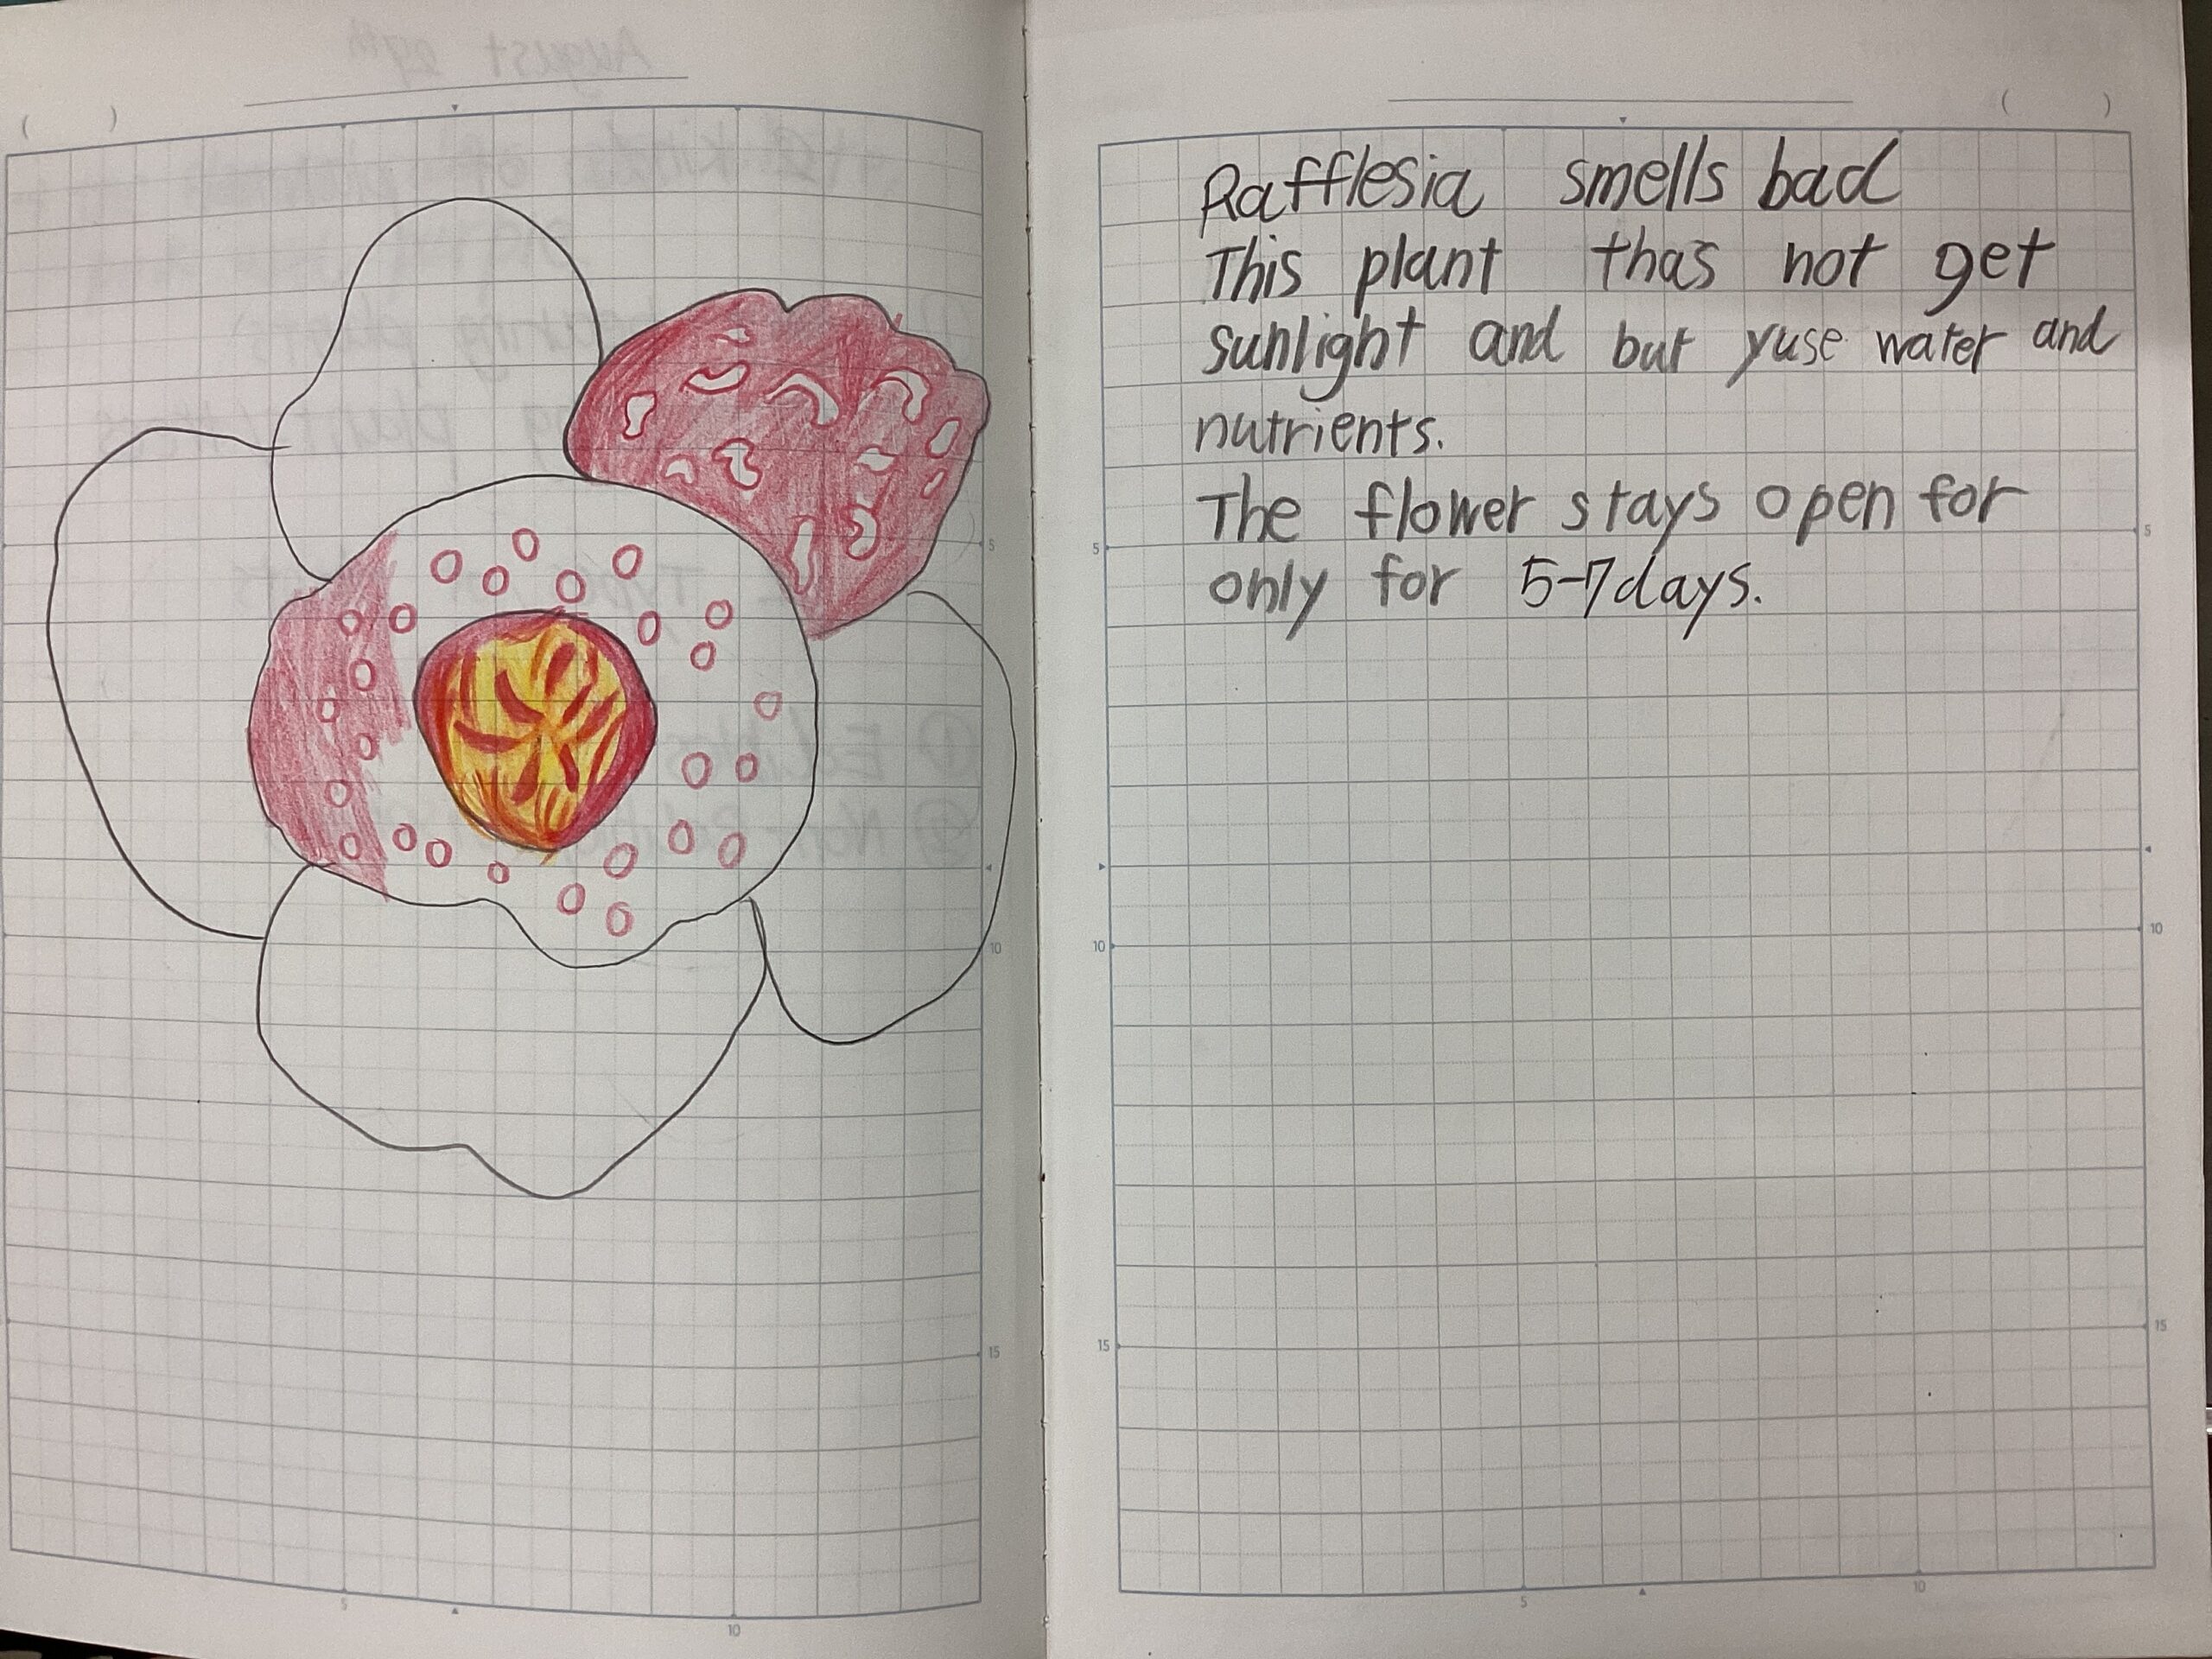 Rafflesia smells bad
This plant thas not get
sunlight and but yuse water and
nutrients.
The flower stays open for
only for 5-7days.